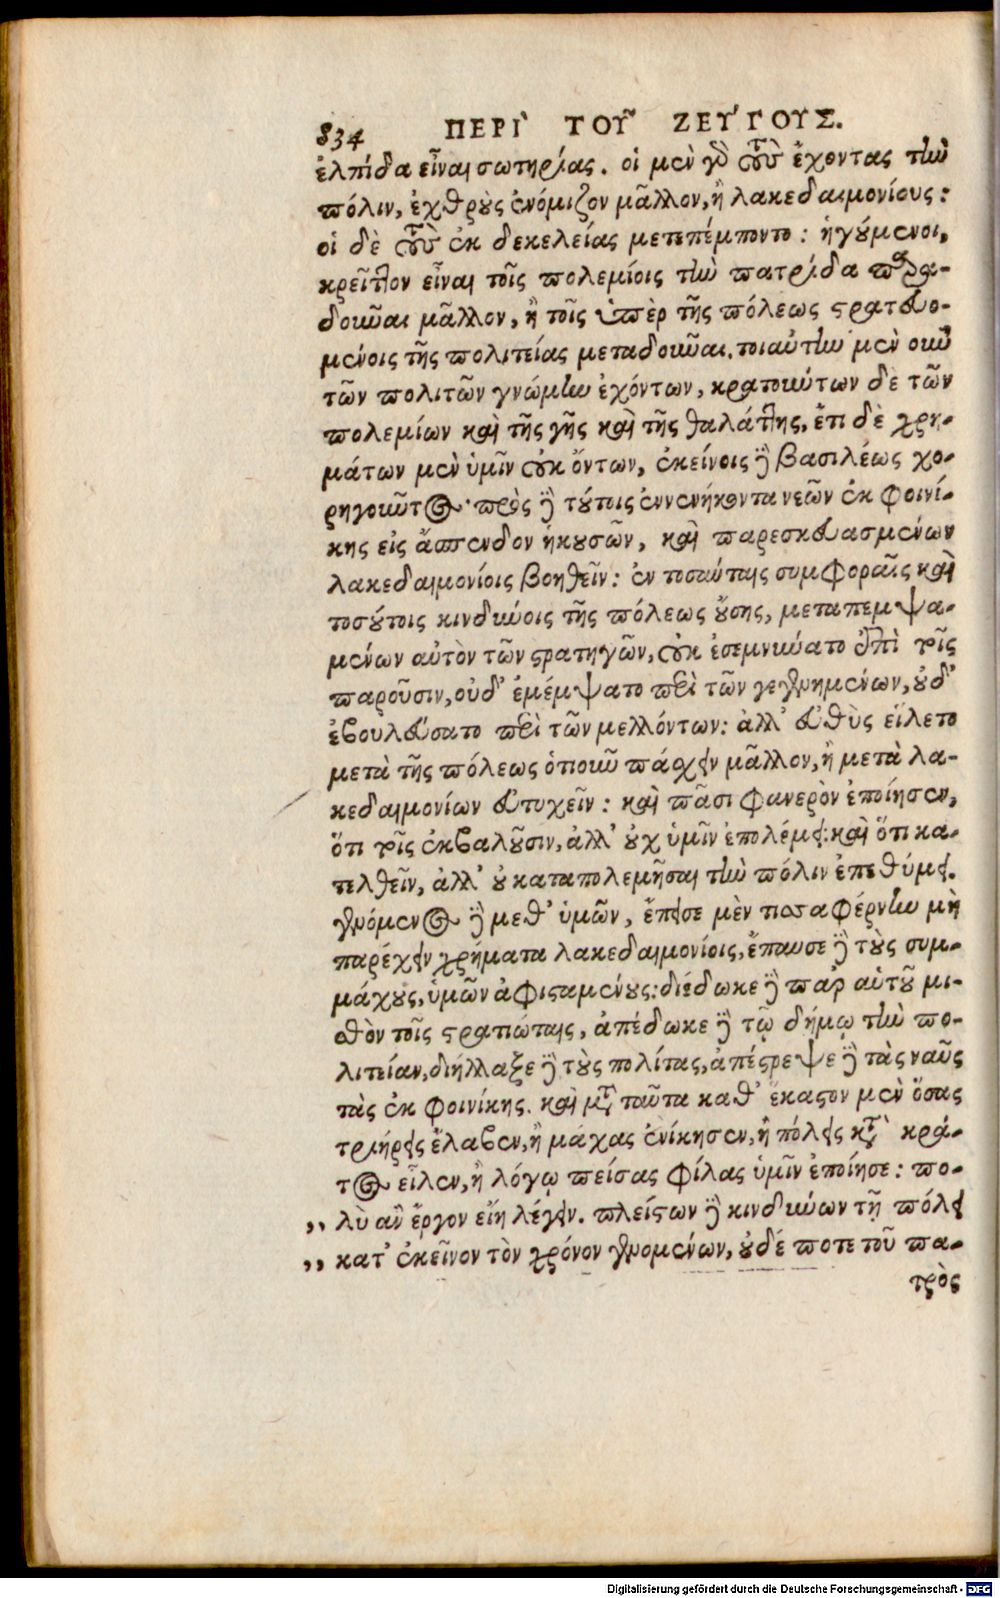 834 ΠΕΡΙ ΤΟΥ ΖΕΥΓΟΥΣ.
ἐλπίδα εἶναι σωτηρίας. οἱ μὲν γὸ τοὺς ἔχοντας τὴν
πόλιν, ἐχθροὺς ἐνόμιζον μᾶλλον, ἢ λακεδαιμονίους:
οἱ δὲ τοὺς ἐκ δεκελείας μετεπέμποντο: ἡγούμενοι,
κρεῖττον εἶναι τοῖς πολεμίοις τὴν πατρίδα παρα-
δοῦναι μᾶλλον, ἢ τοῖς ὑπὲρ τῆς πόλεως στρατευο-
μένοις τῆς πολιτείας μεταδοῦναι. τοιαύτην μὲν οὖν
τῶν πολιτῶν γνώμην ἐχόντων, κρατούντων δὲ τῶν
πολεμίων καὶ τῆς γῆς καὶ τῆς θαλάττης, ἔτι δὲ χρη-
μάτων μὲν ὑμῖν οὐκ ὄντων, ἐκείνοις δὲ βασιλέως χο-
ρηγοῦντος· πρὸς δὲ τούτοις ἐννενήκοντα νεῶν ἐκ φοινί-
κης εἰς ἄσπενδον ἡκουσῶν, καὶ παρεσκευασμένων
λακεδαιμονίοις βοηθεῖν: ἐν τοσαύταις συμφοραῖς καὶ
τοσούτοις κινδύνοις τῆς πόλεως οὔσης, μεταπεμψα-
μένων αὐτὸν τῶν στρατηγῶν, οὐκ ἐσεμνύνατο ἐπὶ τοῖς
παροῦσιν, οὐδ' ἐμέμψατο περὶ τῶν γεγενημένων, οὐδ'
ἐβουλεύσατο περὶ τῶν μελλόντων: ἀλλ' εὐθὺς εἵλετο
μετὰ τῆς πόλεως ὁτιοῦν πάσχειν μᾶλλον, ἢ μετὰ λα-
κεδαιμονίων εὐτυχεῖν: καὶ πᾶσι φανερὸν ἐποίησεν,
ὅτι τοῖς ἐκβαλοῦσιν, ἀλλ' οὐχ ὑμῖν ἐπολέμει: καὶ ὅτι κα-
τελθεῖν, ἀλλ' οὐ καταπολεμῆσαι τὴν πόλιν ἐπεθύμει.
γενόμενος δὲ μεθ' ὑμῶν, ἔπεισε μὲν τισσαφέρνην μὴ
παρέχειν χρήματα λακεδαιμονίοις, ἔπαυσε δὲ τοὺς συμ-
μάχους, ὑμῶν ἀφισταμένους: διέδωκε δὲ παρ' αὑτοῦ μι-
σθὸν τοῖς στρατιώταις, ἀπέδωκε δὲ τῷ δήμῳ τὴν πο-
λιτείαν, διήλλαξε δὲ τοὺς πολίτας, ἀπέστρεψε δὲ τὰς ναῦς
τὰς ἐκ φοινίκης. καὶ μετὰ ταῦτα καθ' ἕκαστον μὲν ὅσας
τριήρεις ἔλαβεν, ἢ μάχας ἐνίκησεν, ἢ πόλεις κατὰ κρά-
τος εἷλεν, ἢ λόγῳ πείσας φίλας ὑμῖν ἐποίησε: πο-
,, λὺ ἂν ἔργον εἴη λέγειν. πλείστων δὲ κινδύνων τῇ πόλει
,, κατ' ἐκεῖνον τὸν χρόνον γενομένων, οὐδέ ποτε τοῦ πα-
τρὸς
Digitalisierung gefördert durch die Deutsche Forschungsgemeinschaft - DFG